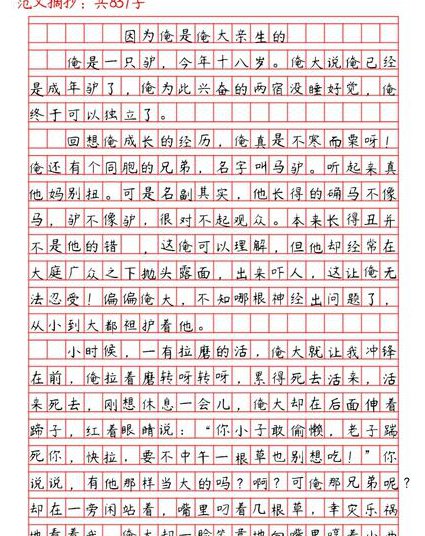 范文摘抄：共831字
因为俺是俺大亲生的
俺是一只驴，今年十八岁。俺大说俺已经
是成年驴了，俺为此兴奋的两宿没睡好觉，俺
终于可以独立了。
回想俺成长的经历，俺真是不寒而栗呀！
俺还有个同胞的兄弟，名字叫马驴。听起来真
他妈别扭。可是名副其实，他长得的确马不像
马，驴不像驴，很对不起观众。本来长得丑并
不是他的错，这俺可以理解，但他却经常在
大庭广众之下抛头露面，出来吓人，这让俺无
法忍受！偏偏俺大，不知哪根神经出问题了，
从小到大都袒护着他。
小时候，一有拉磨的活，俺大就让我冲锋
在前，俺拉着磨转呀转呀，累得死去活来，活
来死去，刚想休息一会儿，俺大却在后面伸着
蹄子，红着眼睛说：“你小子敢偷懒，老子踹
死你，快拉，要不中午一根草也别想吃！”你
说说，有他那样当大的吗？啊？可俺那兄弟呢？
却在一旁闲站着，嘴里叼着几根草，幸灾乐祸
地看着我，俺大却一脸笑意地向嘴里